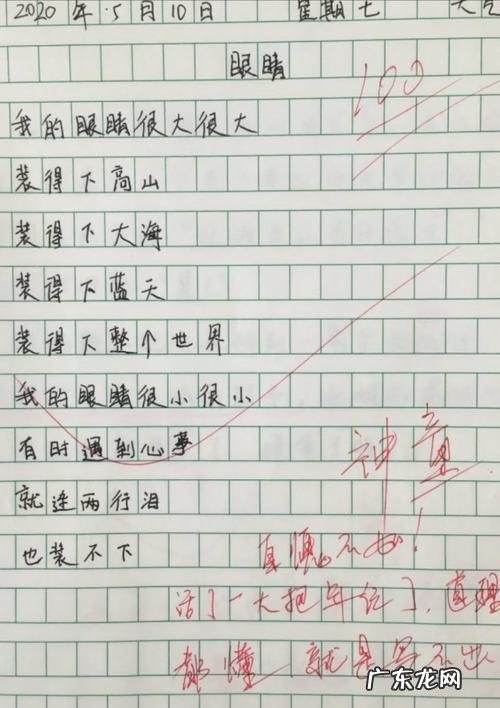 2020年5月10日 星期七 天气
眼睛
100
我的眼睛很大很大
装得下高山
装得下大海
装得下蓝天
装得下整个世界
我的眼睛很小很小
有时遇到心事
就连两行泪
也装不下
神童
自愧不如!
活了一大把年纪了,道理
都懂 就是写不出
广东龙网